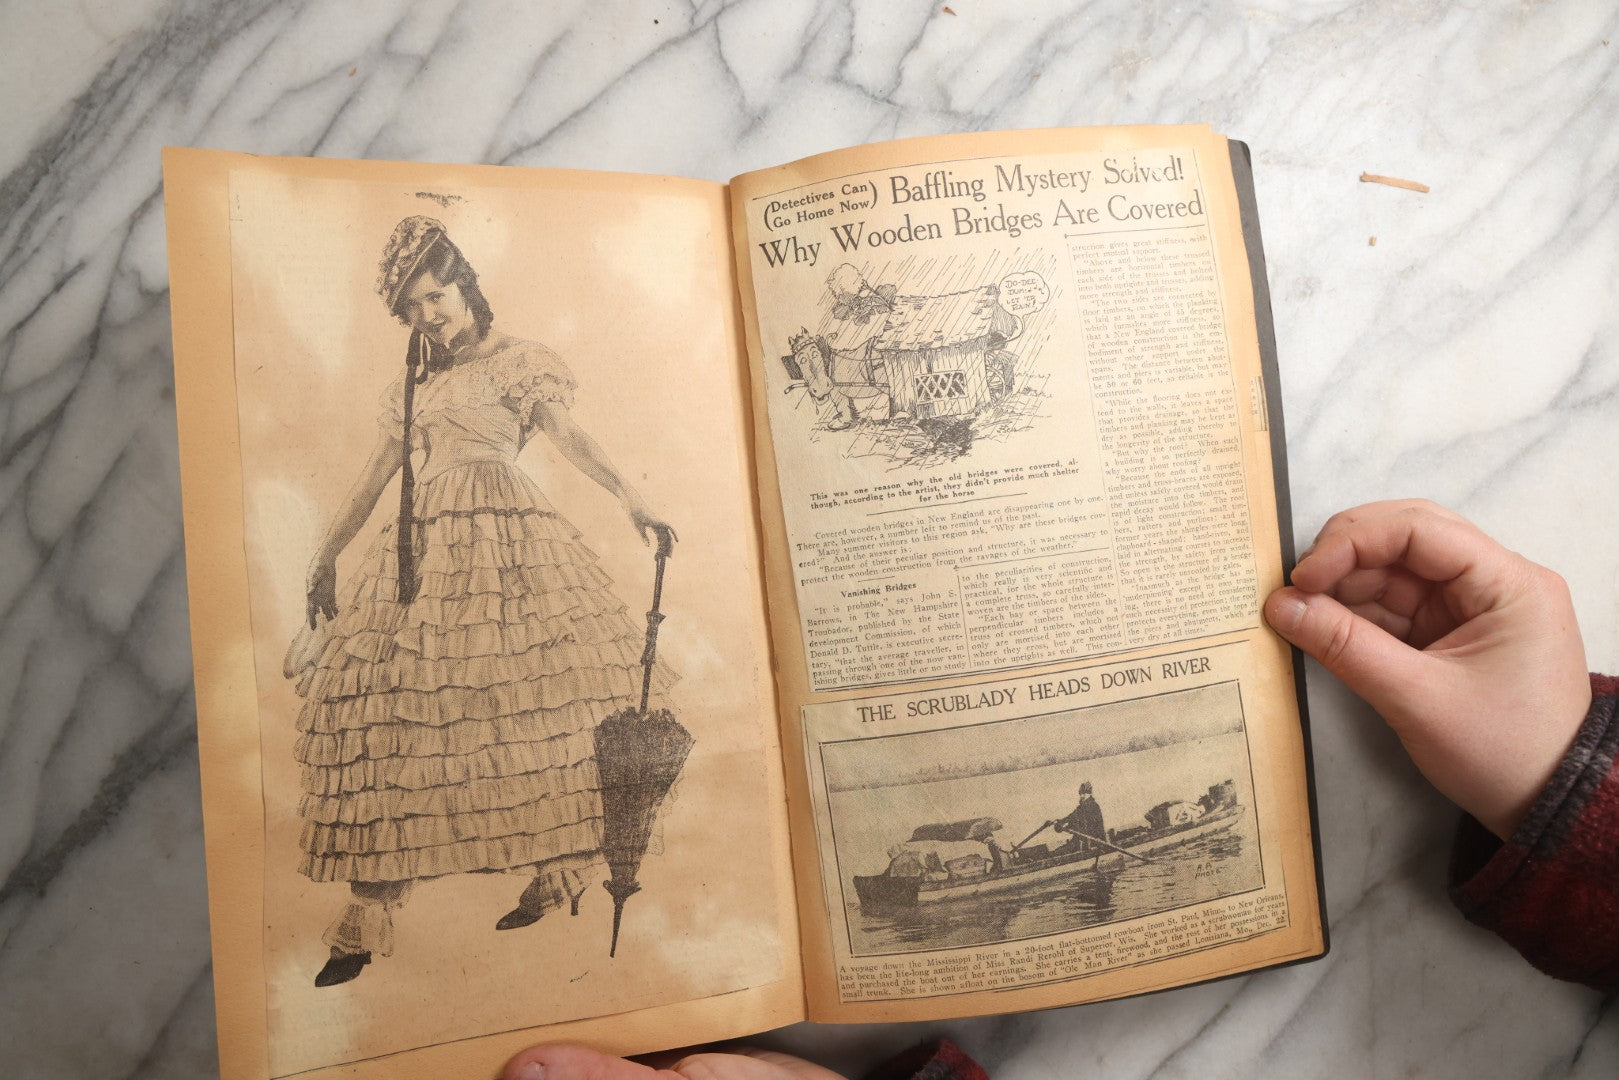 (Detectives Can
Go Home Now)
Baffling Mystery Solved!
Why Wooden Bridges Are Covered
DO-DEE
DUM--
LET 'ER
RAIN!
This was one reason why the old bridges were covered, al-
though, according to the artist, they didn't provide much shelter
for the horse
Covered wooden bridges in New England are disappearing one by one.
There are, however, a number left to remind us of the past.
Many summer visitors to this region ask, "Why are these bridges cov-
ered?" And the answer is:
"Because of their peculiar position and structure, it was necessary to
protect the wooden construction from the ravages of the weather."
Vanishing Bridges
"It is probable," says John S.
Barrows, in The New Hampshire
Troubador, published by the State
development Commission, of which
Donald D. Tuttle, is executive secre-
tary, "that the average traveller, in
passing through one of the now van-
ishing bridges, gives little or no study
to the peculiarities of construction,
which really is very scientific and
practical, for the whole structure is
a complete truss, so carefully inter-
woven are the timbers of the sides.
"Each bay or space between the
perpendicular timbers includes a
truss of crossed timbers, which not
only are mortised into each other
where they cross, but are mortised
into the uprights as well. This con-
struction gives great stiffness, with
perfect mutual support.
"Above and below these trussed
timbers are horizontal timbers on
each side of the trusses and bolted
into both uprights and trusses, adding
more strength and stiffness.
"The two sides are connected by
floor timbers, on which the planking
is laid at an angle of 45 degrees,
which furnishes more stiffness, so
that a New England covered bridge
of wooden construction is the em-
bodiment of strength and stiffness,
without other support under the
spans. The distance between abut-
ments and piers is variable, but may
be 50 or 60 feet, so reliable is the
construction.
"While the flooring does not ex-
tend to the walls, it leaves a space
that provides drainage, so that the
timbers and planking may be kept as
dry as possible, adding thereby to
the longevity of the structure.
"But why the roof? When such
a building is so perfectly drained,
why worry about roofing?
"Because the ends of all upright
timbers and truss-braces are exposed,
and unless safely covered would drain
the moisture into the timbers, and
rapid decay would follow. The roof
is of light construction; small tim-
bers, rafters and purlines; and in
former years the shingles were long,
clapboard-shaped; hand-riven, and
laid in alternating courses to increase
the strength, by safety from winds.
So open is the structure of a bridge
that it is rarely unroofed by gales.
"Inasmuch as the bridge has no
'underpinning' except its own truss-
ing, there is no need of considering
the necessity of protection. The roof
protects everything, even the tops of
the piers and abutments, which are
very dry at all times."
THE SCRUBLADY HEADS DOWN RIVER
A.P.
PHOTO
A voyage down the Mississippi River in a 20-foot flat-bottomed rowboat from St. Paul, Minn., to New Orleans,
has been the life-long ambition of Miss Randi Rerohl of Superior, Wis. She worked as a scrubwoman for years
and purchased the boat out of her earnings. She carries a tent, firewood, and the rest of her possessions in a
small trunk. She is shown afloat on the bosom of "Ole Man River" as she passed Louisiana, Mo., Dec. 22